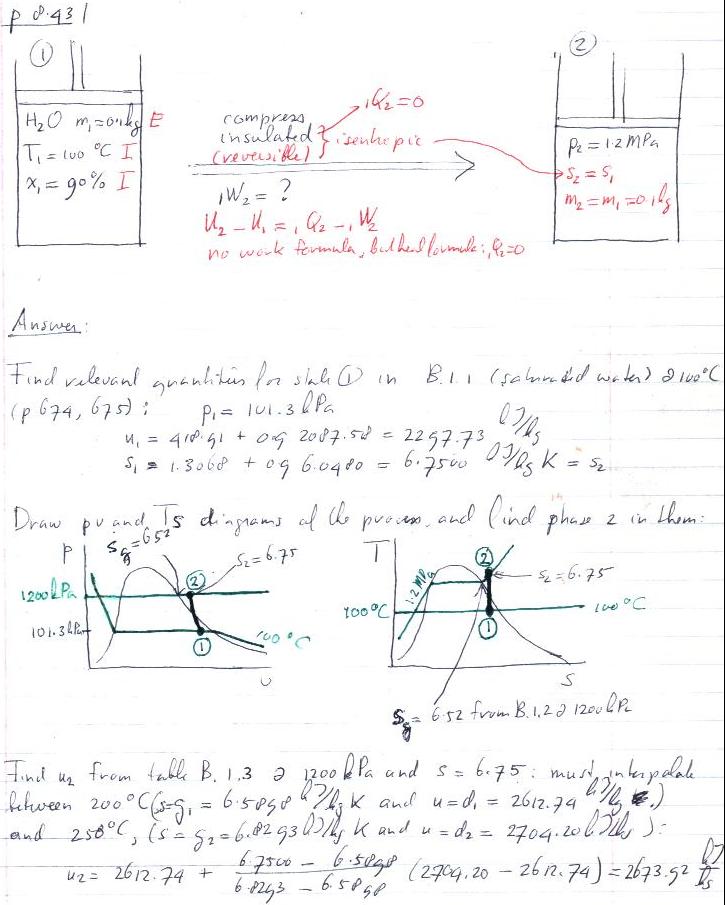 p 8.43
①
②
H₂O m₁=0.1kg E
T₁ = 100 °C I
x₁ = 90% I
compress
insulated
(reversible)
isentropic
₁Q₂=0
₁W₂ = ?
U₂ - U₁ = ₁Q₂ - ₁W₂
no work formula, but heat formula: ₁Q₂=0
p₂ = 1.2 MPa
s₂ = s₁
m₂ = m₁ = 0.1kg
Answer:
Find relevant quantities for state ① in B.1.1 (saturated water) @ 100°C
(p 674, 675): p₁ = 101.3 kPa
u₁ = 418.91 + 0.9 2087.58 = 2297.73 kJ/kg
s₁ = 1.3068 + 0.9 6.0480 = 6.7500 kJ/kg K = s₂
Draw pv and Ts diagrams of the process, and find phase 2 in them:
P
s_g = 6.52
s₂ = 6.75
1200 kPa
②
101.3 kPa
①
100°C
v
T
②
s₂ = 6.75
1.2 MPa
100°C
100°C
①
s
s_g = 6.52 from B.1.2 @ 1200 kPa
Find u₂ from table B.1.3 @ 1200 kPa and s = 6.75: must interpolate
between 200°C (s=g₁ = 6.5898 kJ/kg K and u=d₁ = 2612.74 kJ/kg)
and 250°C, (s = g₂ = 6.8293 kJ/kg K and u = d₂ = 2704.20 kJ/kg):
u₂ = 2612.74 + (6.7500 - 6.5898)/(6.8293 - 6.5898) (2704.20 - 2612.74) = 2673.92 kJ/kg